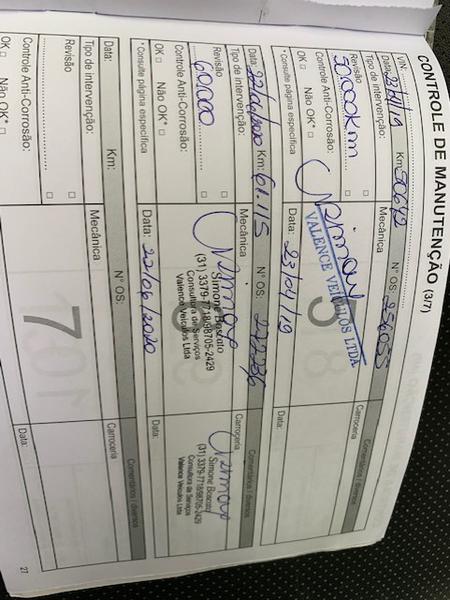 CONTROLE DE MANUTENÇÃO (3/7)
VIN:
Data: 23/04/19 Km: 50642 Nº OS: 256033
Tipo de intervenção: Mecânica Carroceria Comentários / diversos
Revisão
50.000Km
Controle Anti-Corrosão:
OK Não OK*
* Consulte página específica
Simone
VALENCE VEÍCULOS LTDA
Data: 23/04/19
Data:
Data: 22/06/2020 Km: 61.115 Nº OS:
Tipo de intervenção: Mecânica Carroceria Comentários / diversos
Revisão
60.000
Controle Anti-Corrosão:
OK Não OK*
* Consulte página específica
Simone
Simone Boscato
(31) 3379-7718/98705-2429
Consultora de Serviços
Valence Veículos Ltda
Data: 22/06/2020
Simone
Simone Boscato
(31) 3379-7718/98705-2429
Consultora de Serviços
Valence Veículos Ltda
Data:
Data: Km: Nº OS:
Tipo de intervenção: Mecânica Carroceria Comentários / diversos
Revisão
Controle Anti-Corrosão:
OK Não OK*
7
Data:
27